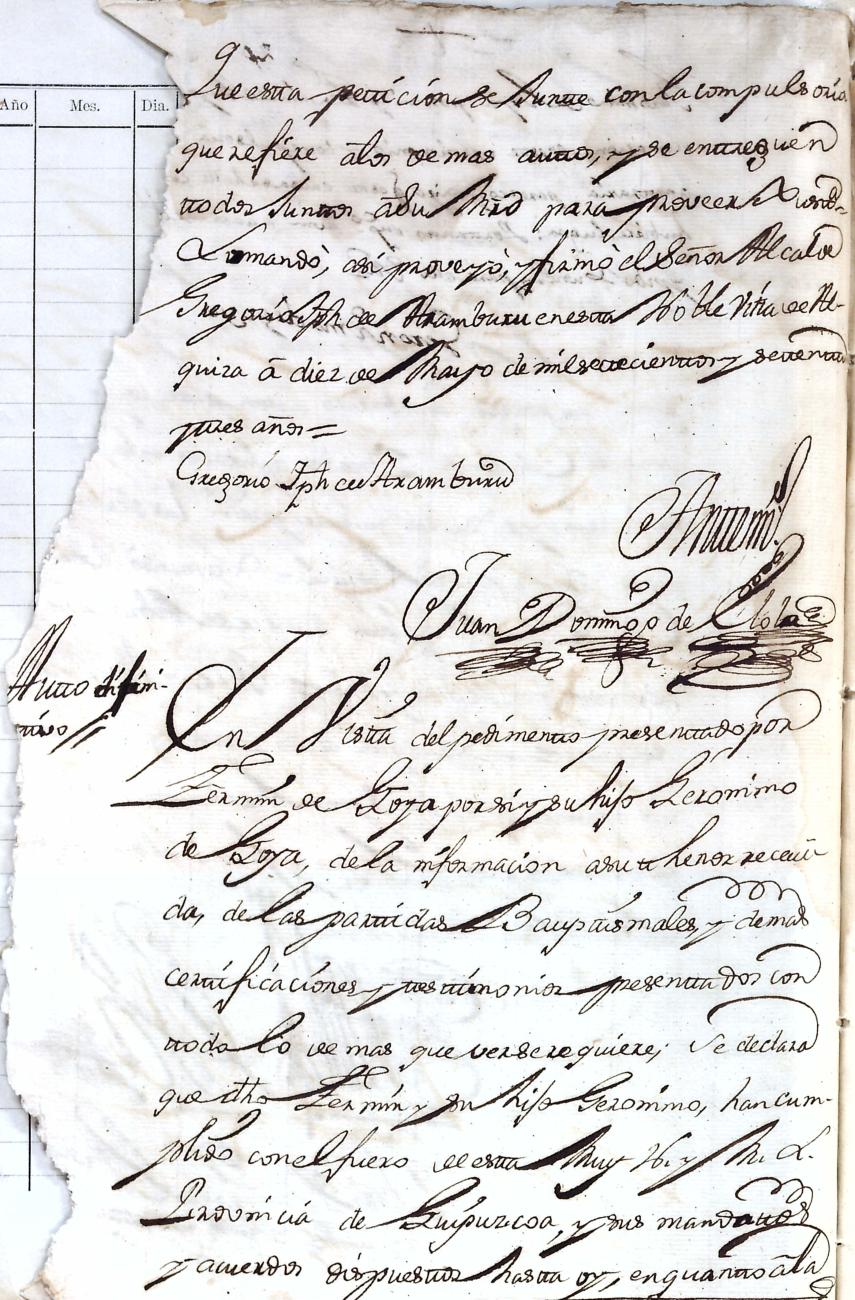 Año Mes. Dia.
Que esta peticion se Junte con la compulsoria
que refiere â los demas autos, y se entreguen
todos Juntos â Su Mrd para proveer
Lo mandò, asi proveyò, y firmò el Señor Alcalde
Gregorio Jph de Aramburu en esta Noble Villa de Al-
quiza â diez de Mayo de mil setecientos y setenta
y tres años=
Gregorio Jph de Aramburu
Antemi
Juan Domingo de
Auto difini-
tivo //
En Vista del pedimento presentado por
Fermin de Goya por si y su hijo Geronimo
de Goya, de la informacion a su thenor recevi
da, de las partidas Baptismales, y demas
certificaciones y testimonios presentados con
todo lo demas que ver se requiere; Se declara
que dho Fermin y su hijo Geronimo, han cum-
plido con el fuero de esta Muy N. y M. L.
Provincia de Guipuzcoa, y sus mandatos
y acuerdos dispuestos hasta oy, en quanto â la